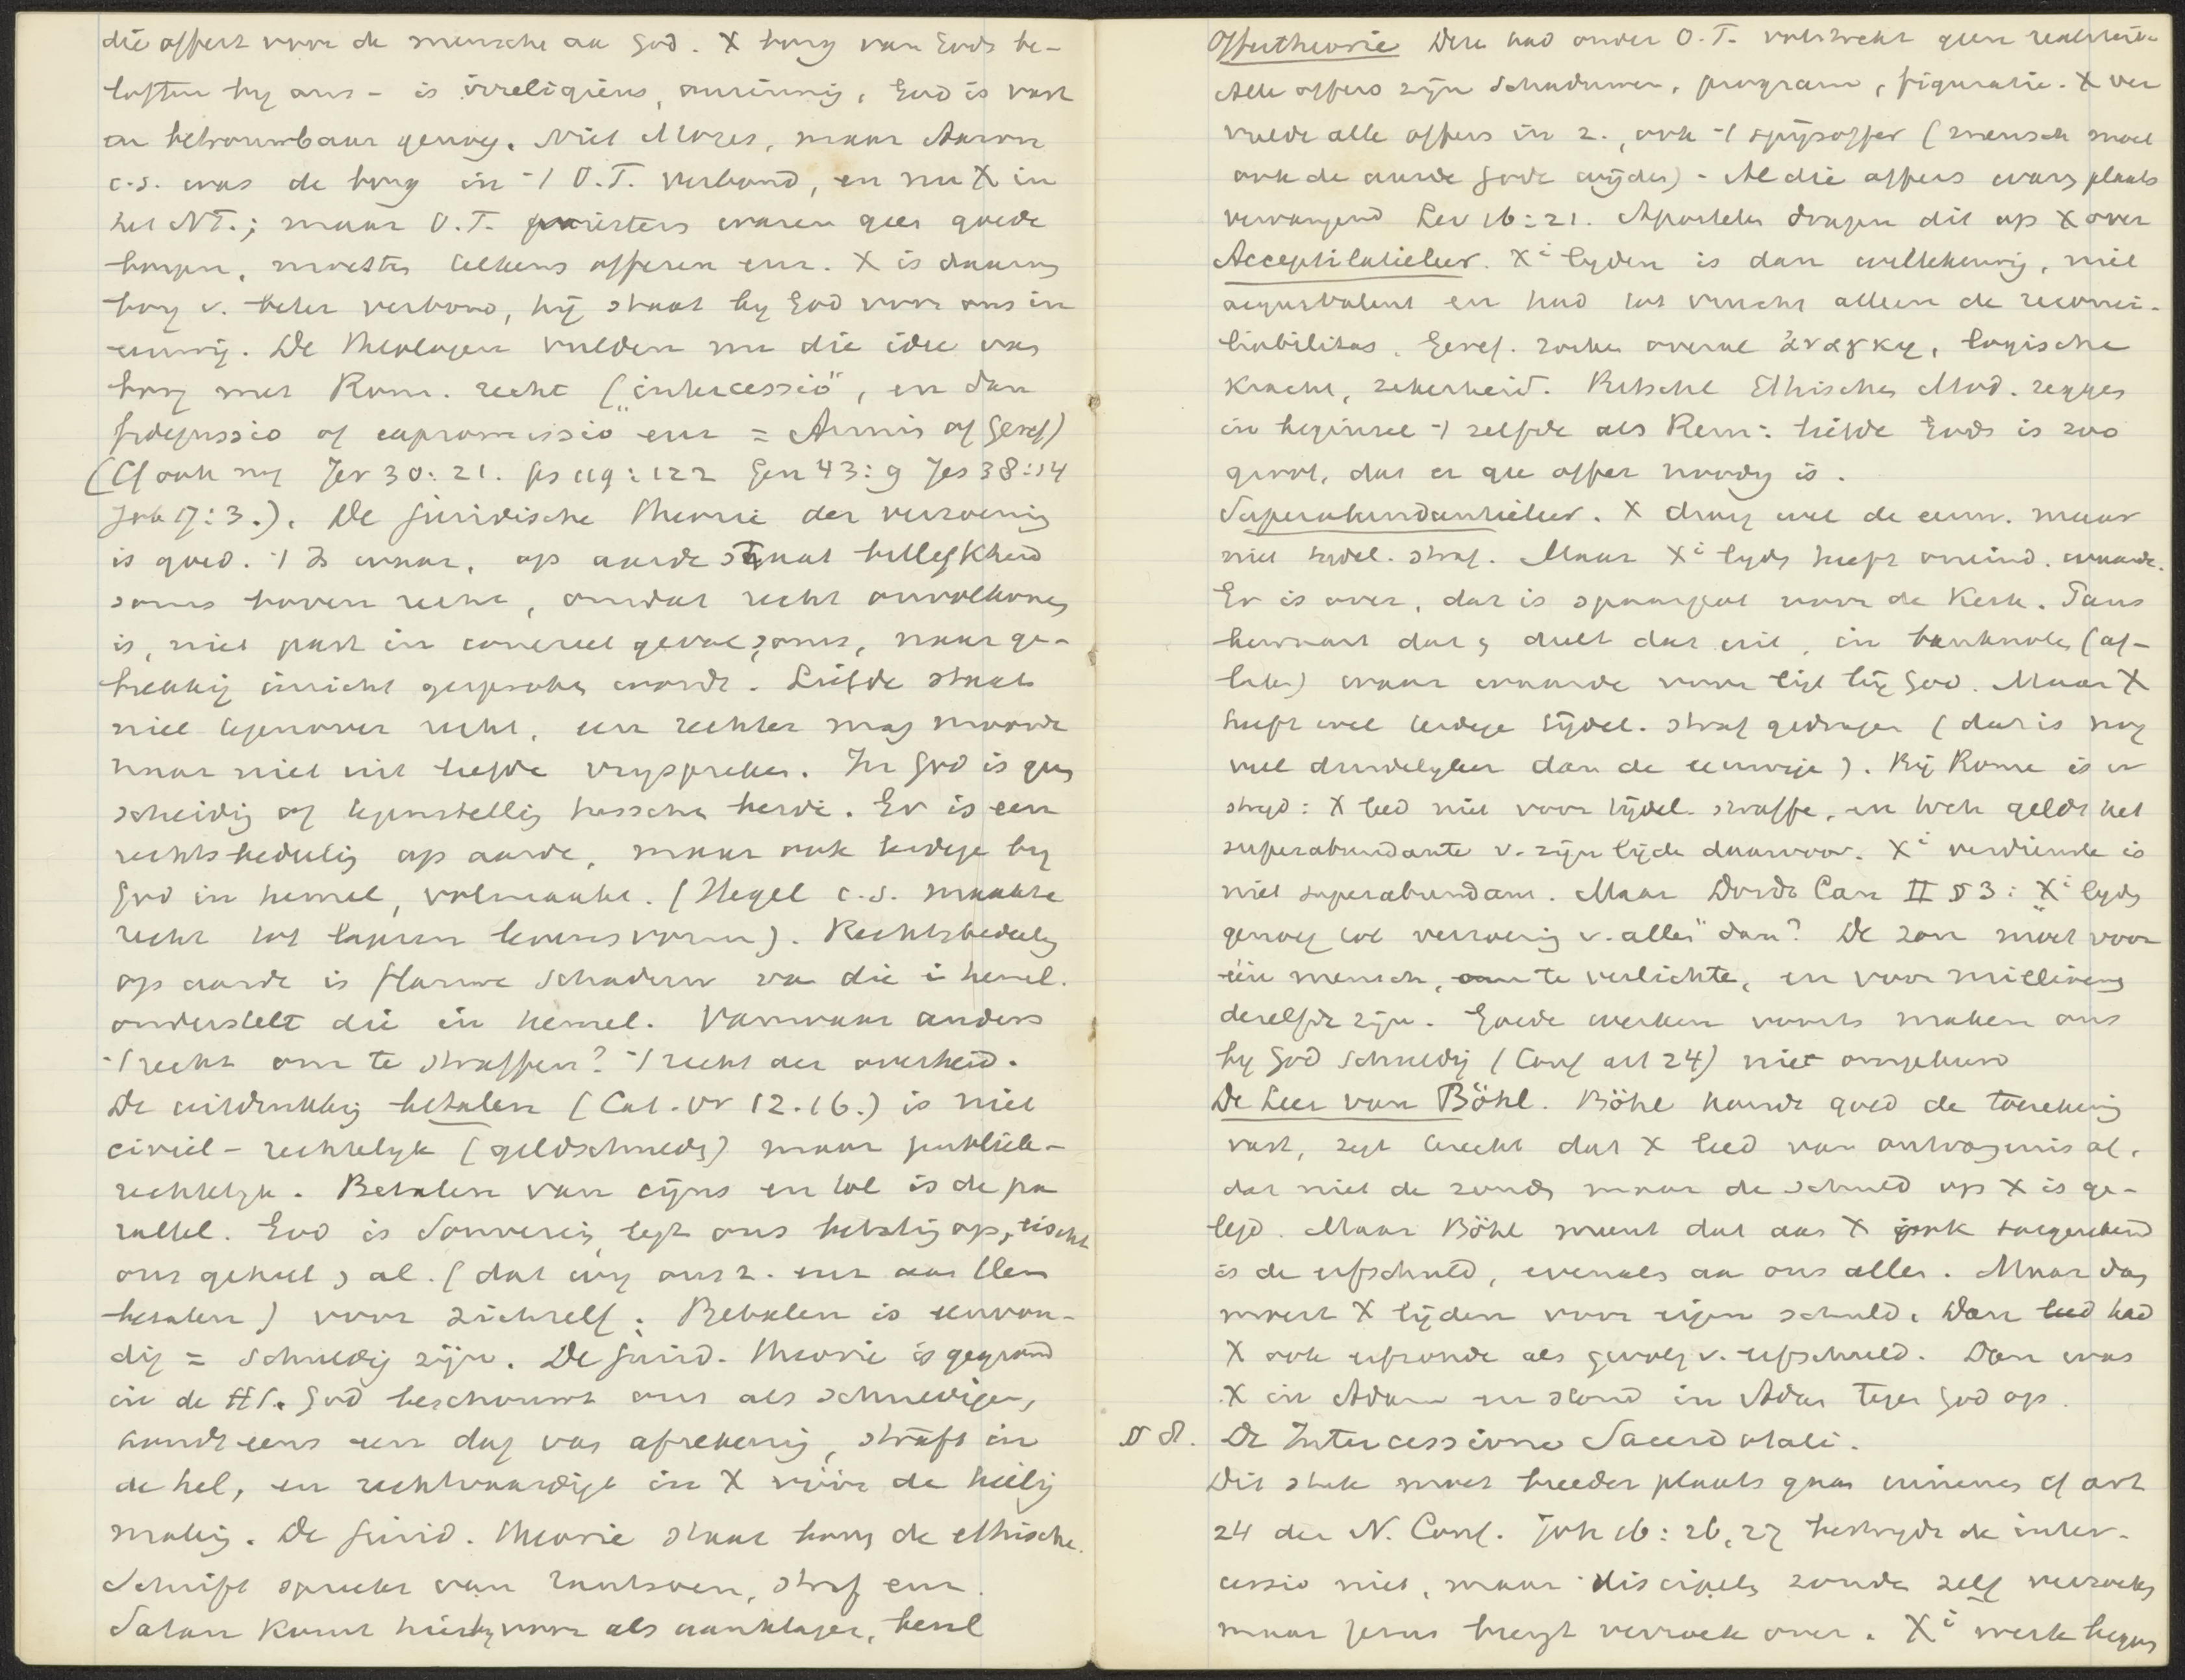 die offert voor de mensche aa God. X borg van Gods be-
loften by ons - is irreligieus, onzinnig, God is vast
en betrouwbaar genoeg. Niet Mozes, maar Aaron
c.s. was de borg in -/ O.T. verbond, en nu X in
het NT.; maar O.T. priesters waren geen goede
borgen, moesten telkens offeren enz. X is daarom
borg v. beter verbond, hij staat by God voor ons in
eeuwig. De Theologen vulden nu die idee van
borg met Rom. recht („intercessio", en dan
fidejussio of expromissio enz = Armin of Geref)
(Cf ook nog Jer 30:21. Ps 119:122 Gen 43:9 Jes 38:14
Job 17:3.). De juridische theorie der verzoening
is goed. -/ Is waar, op aarde staat billijkheid
soms boven recht, omdat recht onvolkomen
is, niet past in concreet geval soms, maar ge-
brekkig inricht gesproken wordt. Liefde staat
niet tegenover recht, een rechter mag moorde
naar niet uit liefde vryspreken. In God is geen
scheidig of tegenstellig tusschen beide. Er is een
rechtsbedeelig op aarde, maar ook zoodige by
God in hemel, volmaakt. (Hegel c.s. maakte
recht tot lageren levensvorm). Rechtsbedeelig
op aarde is flauwe schaduw va die i hemel.
onderstelt die in hemel. Vanwaar anders
-/ recht om te straffen? -/ recht der overheid.
De uitdrukkig betalen (Cat. vr 12.16.) is niet
civiel-rechtelyk (geldschuld) maar publiek-
rechtelyk. Betalen van cijns en tol is de pa
rallel. God is Souverein, legt ons belastig op, eischt
ons geheel al. (dat wy ons z. enz aan Hem
betalen) voor zichzelf. Betalen is eenvou-
dig = schuldig zijn. De jurid. theorie is gegrond
in de HS. God beschouwt ons als schuldigen,
houdt eens een dag van afrekenig, straft in
de hel, en rechtvaardigt in X vóór de heilig
makig. De jurid. theorie staat boven de ethische.
Schrift spreekt van zoenen, straf enz.
Satan komt hierby voor als aanklager, heel
Offertheorie Deze had onder O.T. volstrekt geen realiteit.
Alle offers zijn schaduwen, program, figuratie. X ver
vulde alle offers in z., ook -/ spijsoffer (mensch moet
ook de aarde Gode wijden) - Al die offers waren plaats
vervangend Lev 16:21. Apostelen dragen dit op X over
Acceptilatieleer. Xi lyden is dan willekeurig, niet
aequivalent en had tot vrucht alleen de reconci-
liabilitas. Geref. zoeken overal ἀνάγκη, logische
kracht, zekerheid. Ritschl Ethischen Mod. zeggen
in beginsel -/ zelfde als Rem: liefde Gods is zoo
groot, dat er gee offer noodig is.
Superabundantieleer. X droeg wel de eeuw. maar
niet tijdel. straf. Maar Xi lyden heeft oneind. waarde.
Er is over, dat is spaarpot voor de Kerk. Paus
bewaart dat en deelt dat uit, in banknoten (af-
laten) waar waarde voor ligt bij God. Maar X
heeft wel terdege tijdel. straf gedragen (dat is nog
veel duidelyker dan de eeuwige). Bij Rome is er
strijd: X leed niet voor tijdel. straffe, en toch geldt het
superabundante v. zijn lijde daarvoor. Xi verdienste is
niet superabundant. Maar Dordt Can II § 3: Xi lyden
genoeg tot verzoenig v. „allen" dan? De zon moet voor
één mensch, om te verlichte, en voor millioenen
dezelfde zijn. Goede werken voorts maken ons
by God schuldig (Conf art 24) niet omgekeerd
De Leer van Böhl. Böhl houdt goed de toerekenig
vast, zegt terecht dat X leed van ontvangenis af,
dat niet de zonde maar de schuld op X is ge-
legd. Maar Böhl meent dat aan X ook toegerekend
is de erfschuld, evenals aa ons allen. Maar dan
moest X lijden voor eigen schuld. Dan had
X ook erfzonde als gevolg v. erfschuld. Dan was
X in Adam en stond in Adam tegen God op.
§ 8. De Intercessione Sacerdotali.
Dit stuk moet breeder plaats gaan innemen cf art
24 der N. Conf. Joh 16:26,27 bestrydt de inter-
cessio niet, maar discipelen zonden zelf verzoeken
maar Jezus brengt verzoek over. Xi werk begon